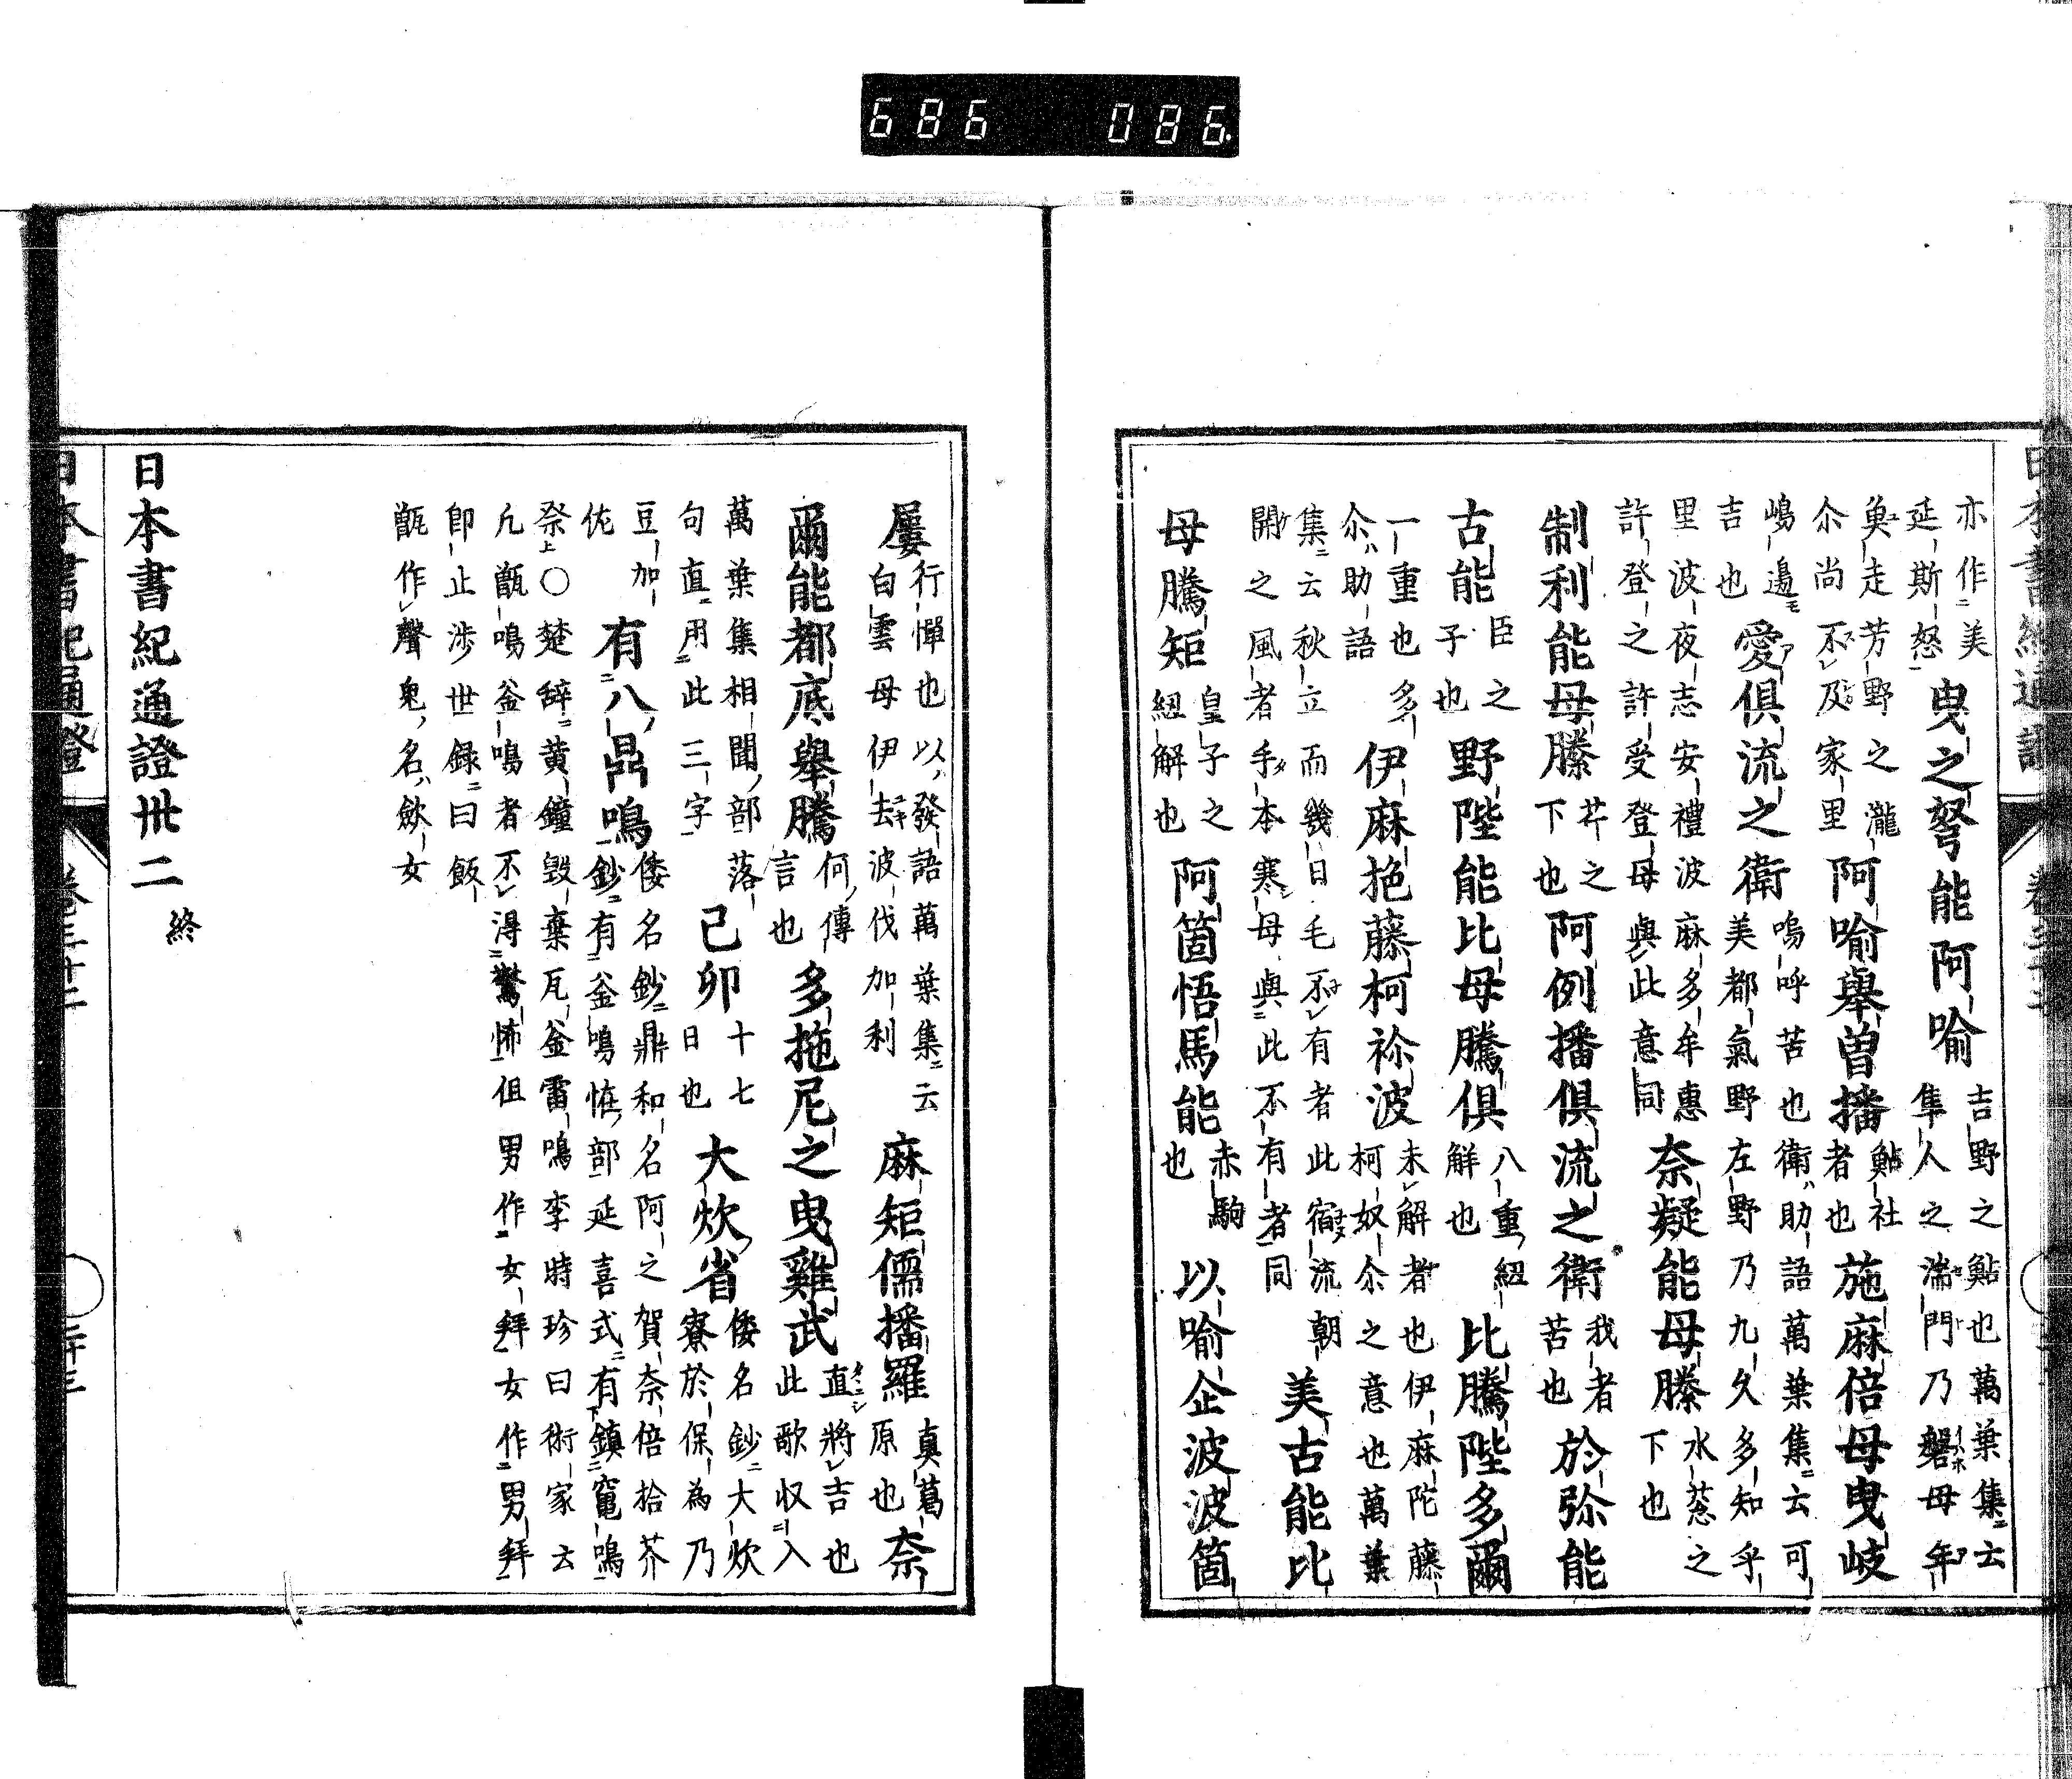 686 086
亦作美
延斯怒
曳之弩能阿喻
吉野之鮎也萬葉集云
隼人之湍門乃磐母年
魚走芳野之瀧
尒尚不及家里
阿喻舉曽播
鮎社
者也
施麻倍母曳岐
嶋邊
吉也
愛俱流之衛
嗚呼苦也衛助語萬葉集云可
美都氣野左野乃九久多知乎
里波夜志安禮波麻多牟惠
許登之許受登母與此意同
奈凝能母縢
水葱之
下也
制利能母縢
芹之
下也
阿例播俱流之衛
我者
苦也
於弥能
古能
臣之
子也
野陛能比母騰俱
八重紐
解也
比騰陛多爾
一重也
尒助語
多
伊麻拖藤柯祢波
未解者也伊麻陀藤
柯奴尒之意也萬葉
集云秋立而幾日毛不有者此宿流朝
開之風者手本寒母與此不有者同
美古能比
母騰矩
皇子之
紐解也
阿箇悟馬能
赤駒
也
以喻企波波箇
屢
行憚也以發語萬葉集云
白雲母伊去波伐加利
麻矩儒播羅
真葛
原也
奈
爾能都底舉騰
何傳
言也
多拖尼之曳雞武
直將吉也
此歌収入
萬葉集相聞部
句直用此三字
落
己卯
十七
日也
大炊省
倭名鈔大炊
寮於保為乃
豆加
佐
有八鼎鳴
倭名鈔鼎和名阿之賀奈倍拾芥
鈔有釜鳴恠部延喜式有鎮竈鳴
祭〇楚辞黄鐘毀棄瓦釜雷鳴李時珍曰術家云
凡甑鳴釜鳴者不得驚怖但男作女拜女作男拜
即止渉世録曰飯
甑作聲鬼名歛女
日本書紀通證卅二
終
日本書紀通證
卷三十二
二十三